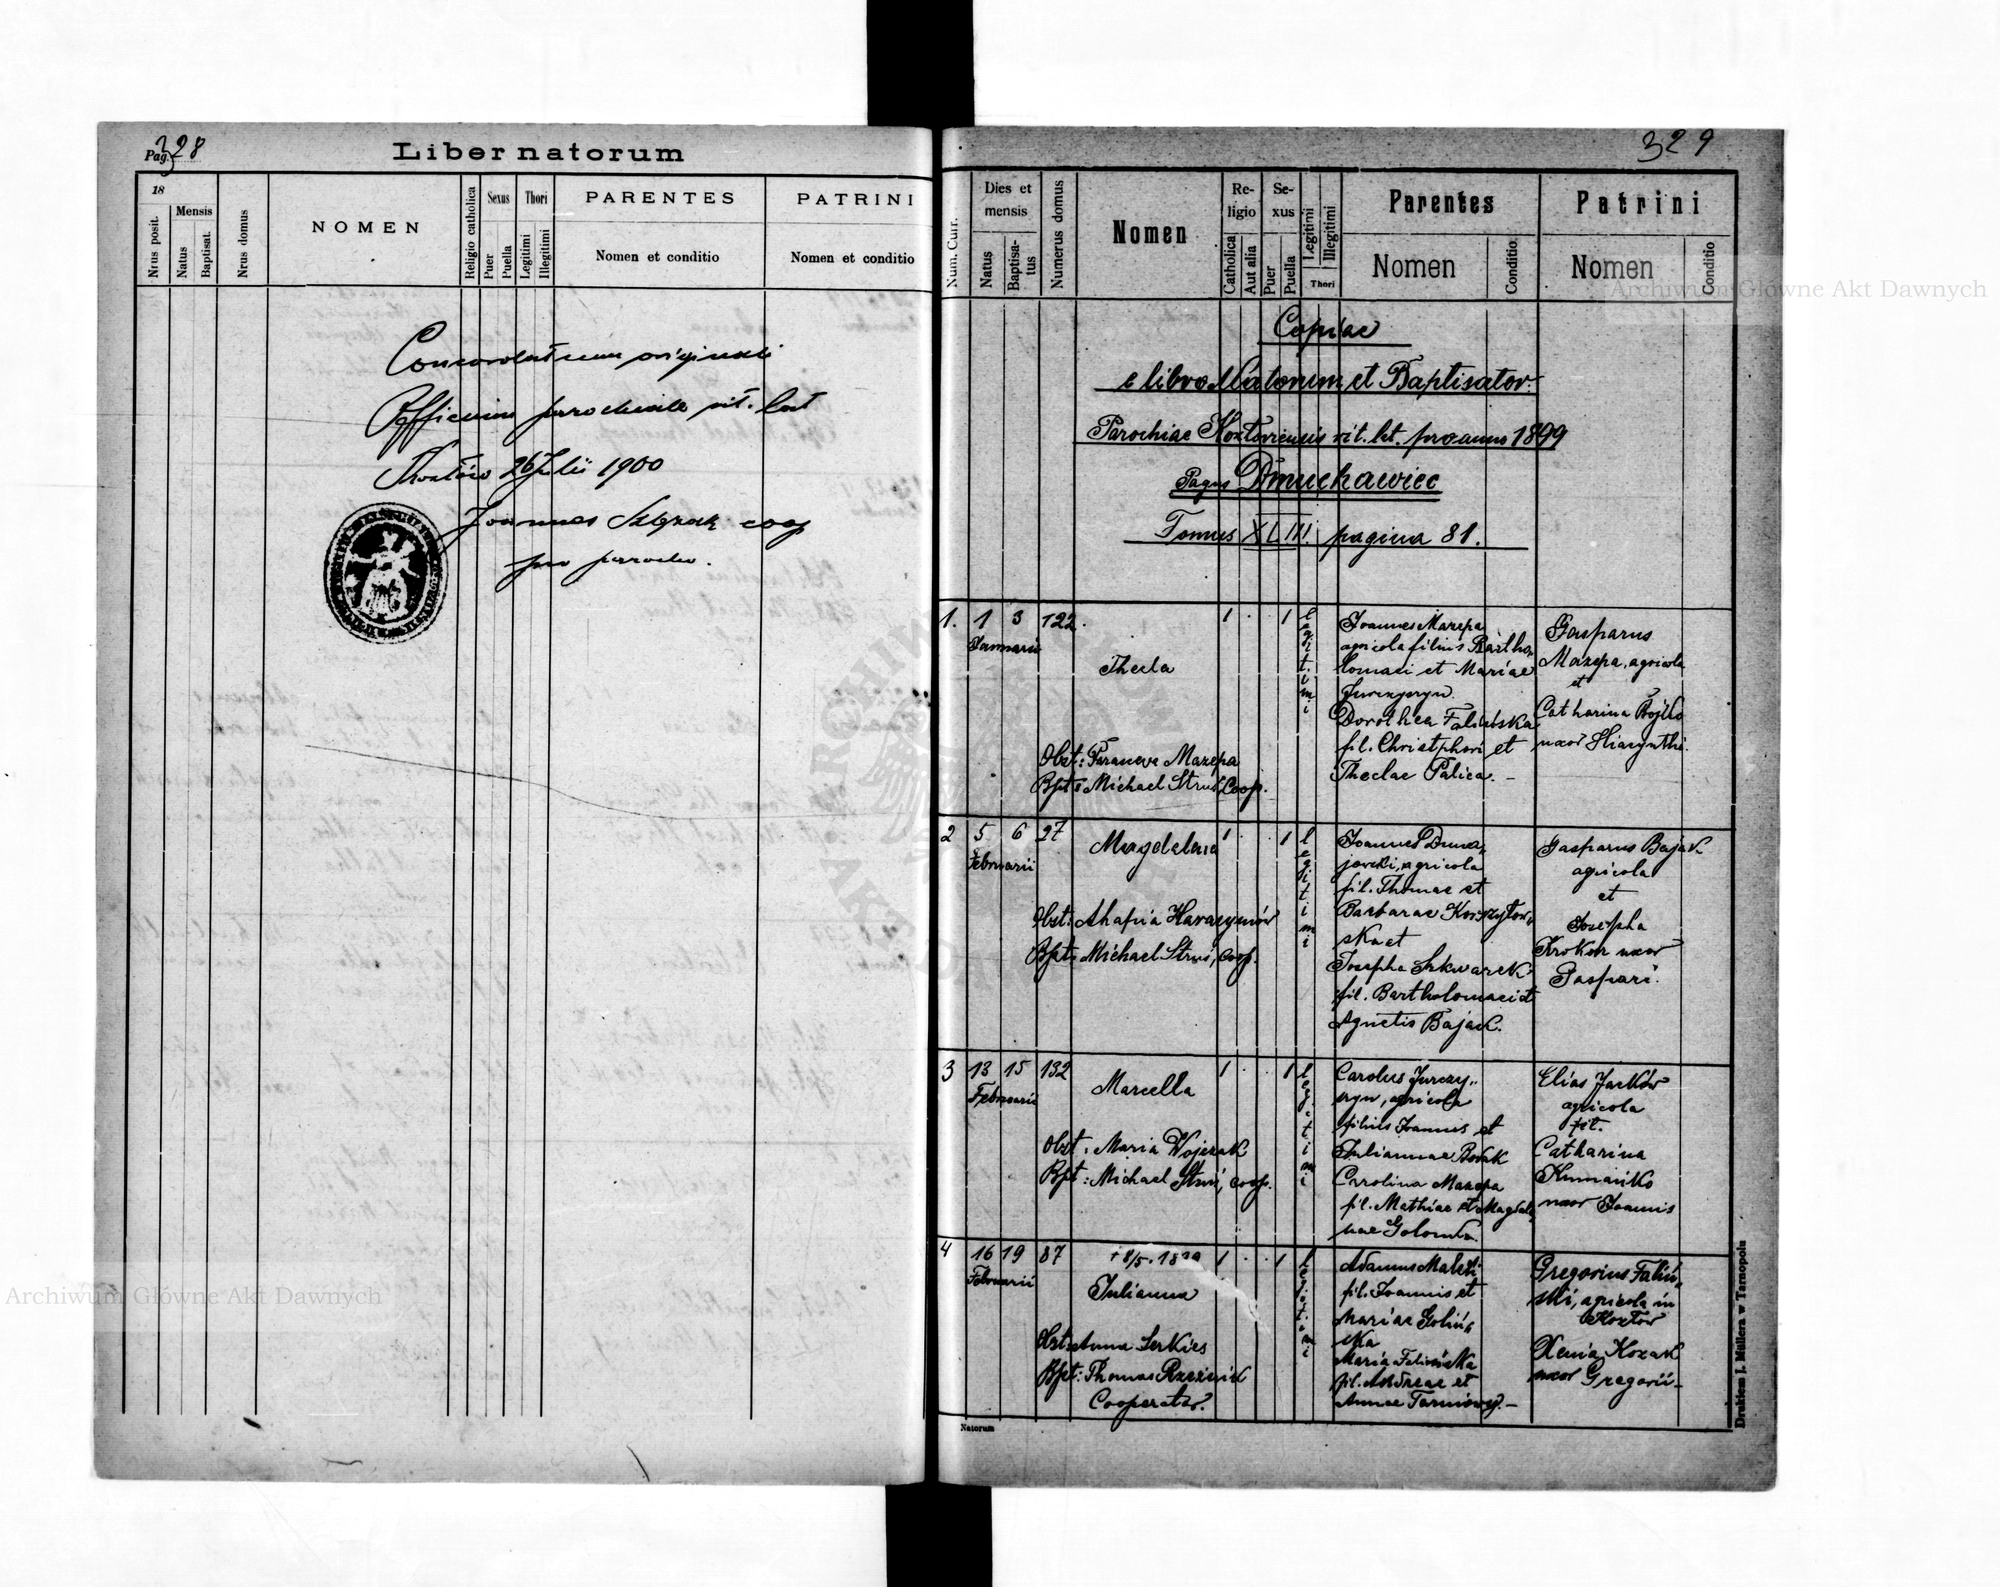 Pag. 328
Liber natorum
18
Nrus posit.
Mensis
Natus
Baptisat.
Nrus domus
NOMEN
Religio catholica
Sexus
Puer
Puella
Thori
Legitimi
Illegitimi
PARENTES
Nomen et conditio
PATRINI
Nomen et conditio
Concordat cum originali
Officium parochiale rit. lat
26 Julii 1900
Joannes coop
pro parocho.
329
Num. Curr.
Dies et mensis
Natus
Baptisa-
tus
Numerus domus
Nomen
Re-
ligio
Catholica
Aut alia
Se-
xus
Puer
Puella
Legitimi
Illegitimi
Thori
Parentes
Nomen
Conditio
Patrini
Nomen
Conditio
Copiae
e libro Natorum et Baptisator.
Parochiae Kozłoviensis rit. lat. pro anno 1899
Pagus Dmuchawiec
Tomus XLIII. pagina 81.
1. 1 3 122.
Januarii
Thecla
1 . 1
legitimi
Obst: Parasceve Mazepa
Bpt: Michael Struś, Coop.
Joannes Mazepa
agricola filius Bartho-
lomaei et Mariae
Jurczyszyn.
Dorothea Falińska
fil. Christophori et
Theclae Palica. –
Gasparus
Mazepa, agricola
et
Catharina Bojko
uxor Hiacynthi.
2 5 6 27
Februarii
Magdalena
1 . 1
legitimi
Obst: Ahafia Harasymów
Bpt: Michael Struś, coop.
Joannes Duna-
jewski, agricola
fil. Thomae et
Barbarae
ska et
Josepha Szkwarek
fil. Bartholomaei et
Agnetis Bajak.
Gasparus Bajak
agricola
et
Josepha
Krokor uxor
Gaspari.
3 13 15 132
Februarii
Marcella
1 1
legitimi
Obst: Maria Wojczak
Bpt: Michael Struś, coop.
Carolus Jurczy-
szyn, agricola
filius Joannis et
Juliannae Bosak
Carolina Mazepa
fil. Mathiae et Magdale-
nae Golomba.
Elias Jacków
agricola
fil.
Catharina
Kumańko
uxor Joannis
4 16 19 87
Februarii
† 8/5. 1899
Julianna
1 . 1
legitimi
Obst: Anna Serkies
Bpt: Thomas
Cooperator.
Adamus Malski
fil. Joannis et
Mariae Goliń-
ska
Maria Falińska
fil. Andreae et
Annae –
Gregorius Faliń-
ski, agricola in
Kozłow
Xenia Kozak
uxor Gregorii –
Natorum
Drukiem J. Müllera w Tarnopolu
Archiwum Główne Akt Dawnych
Archiwum Główne Akt Dawnych